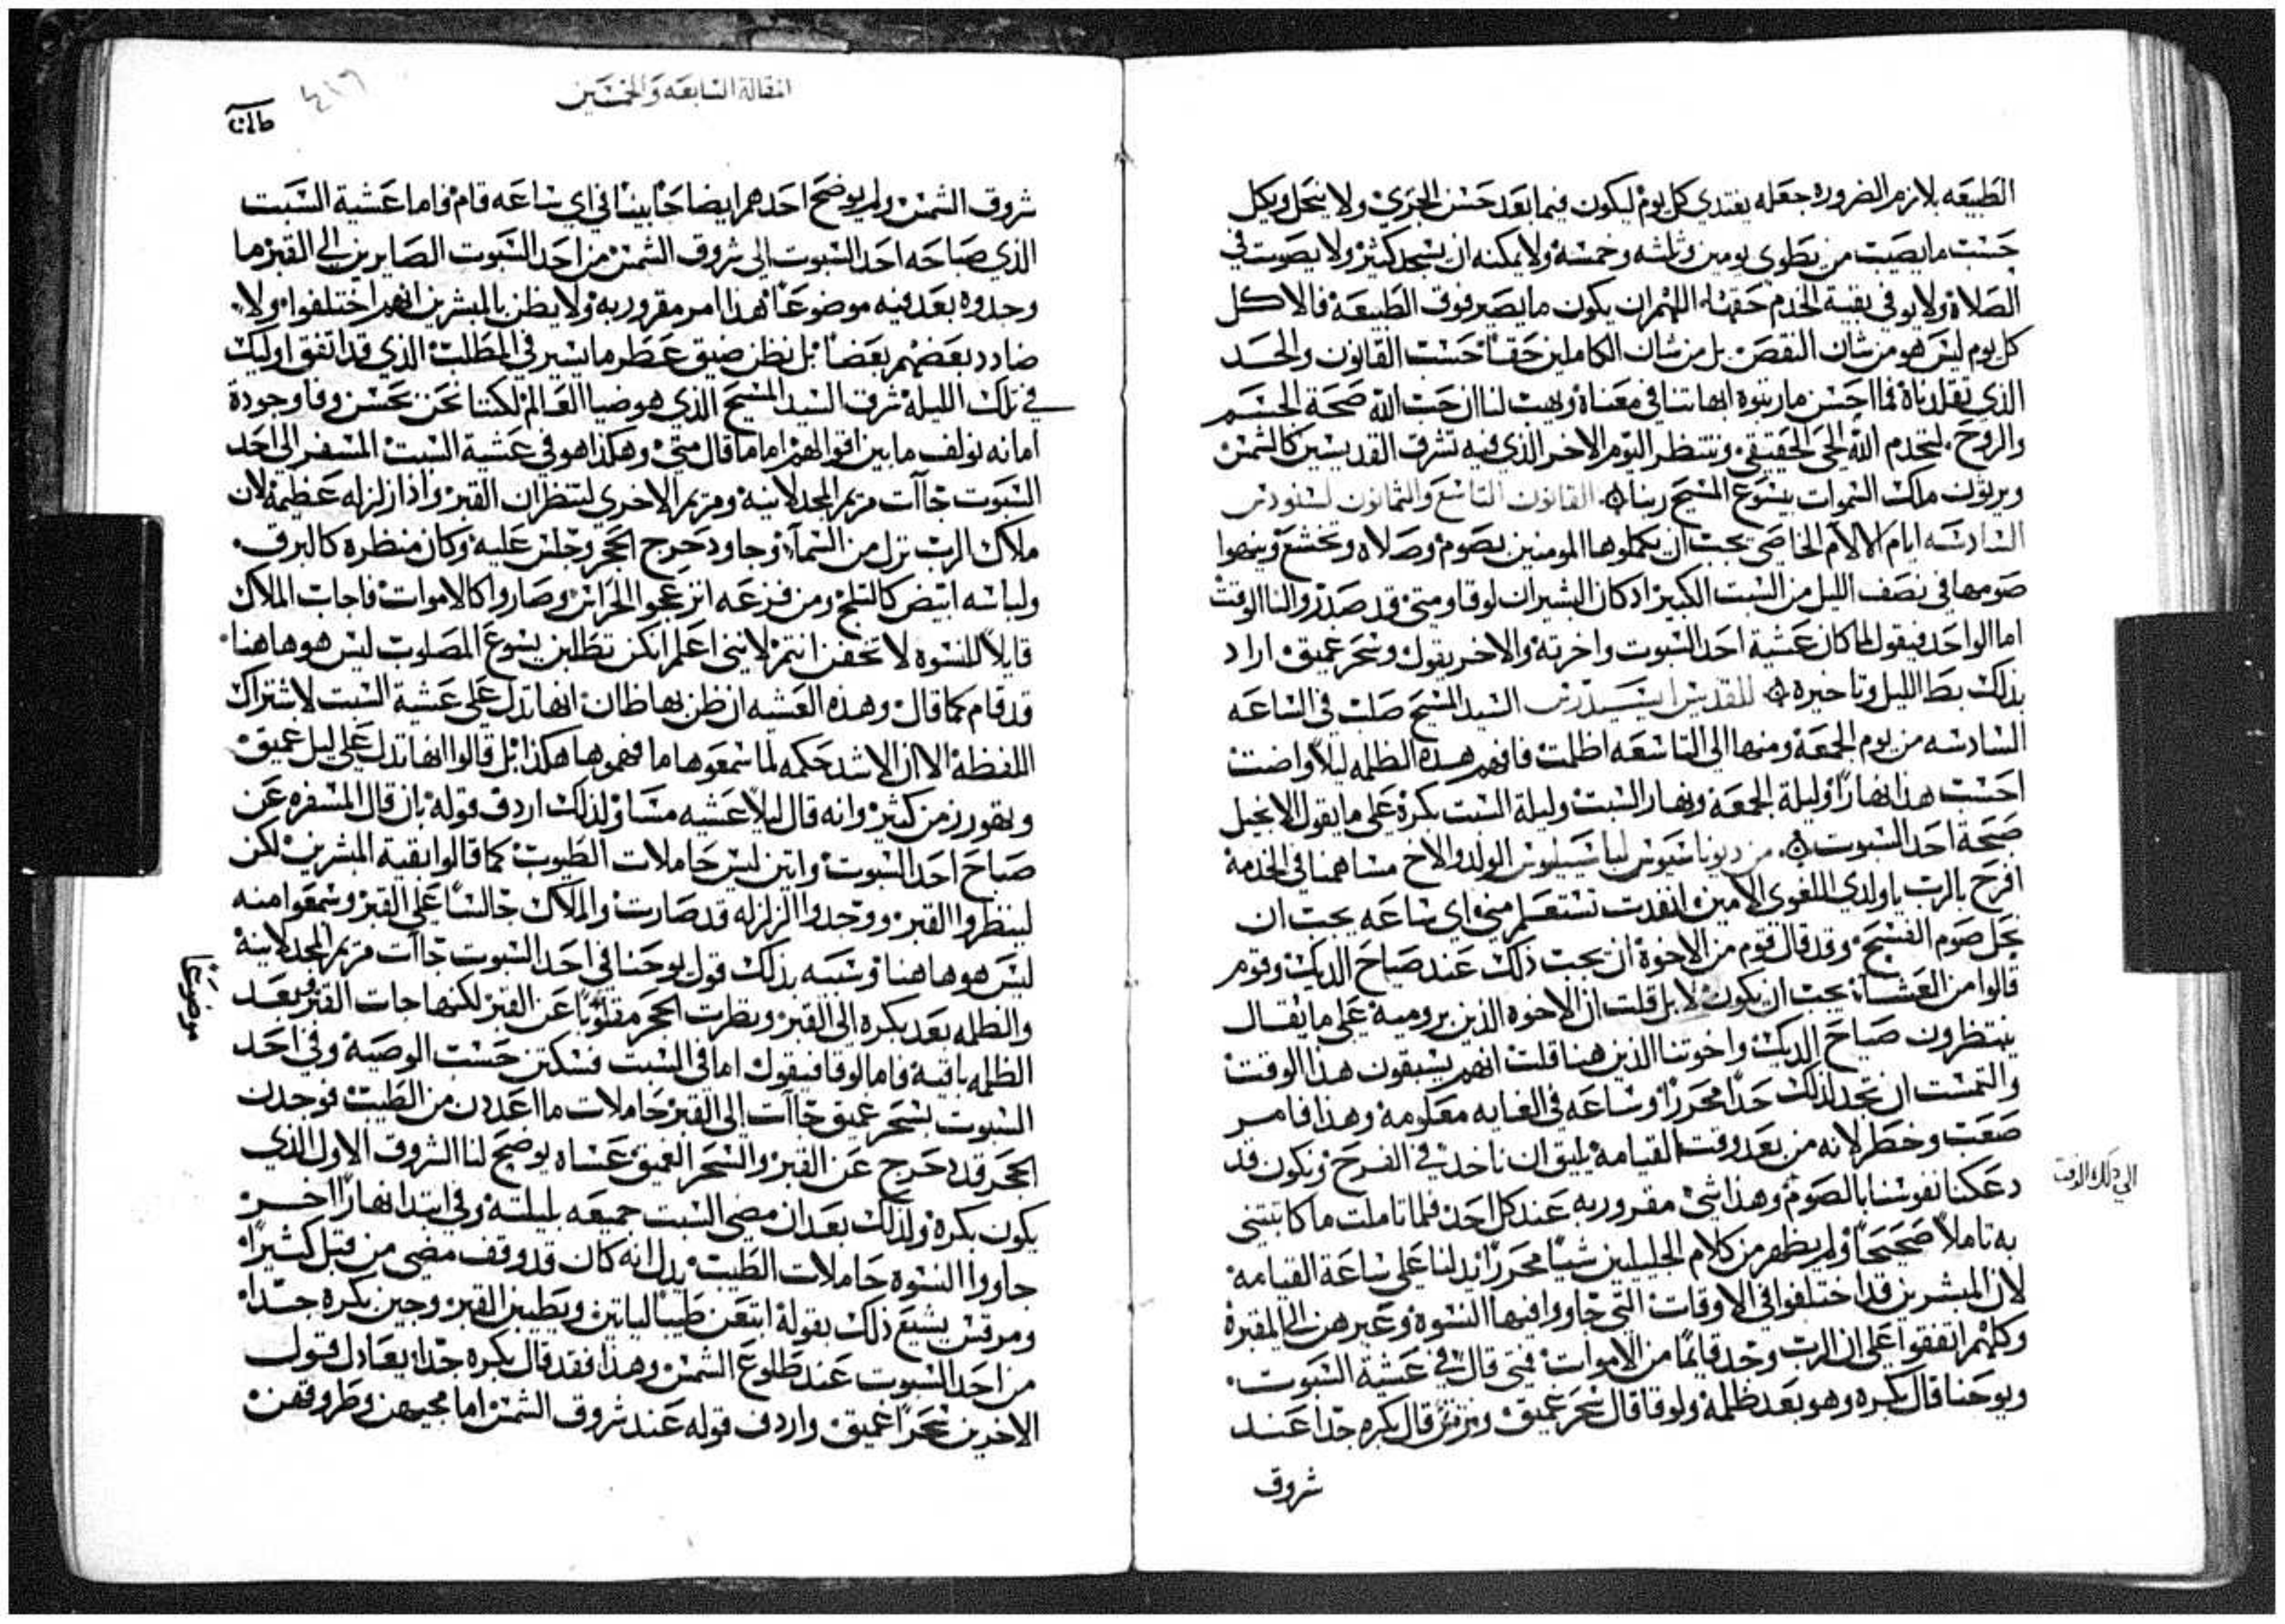 الطبيعه بلازم الضروره جعله يغتدي كل يوم ليكون فيما بعد حسن الجري ولا ينحل ويكل
حسب ما يصيب من يطوي يومين وثلثه وخمسه ولا يمكنه ان يسجد كثير ولا يصوت في
الصلاة ولا يوفي بقية الخدم حقها اللهم ان يكون ما يصير فوق الطبيعة فالاكل
كل يوم ليس هو من شان النقص بل من شان الكاملين حقا حسب القانون والحد
الذي تقلدناه فما احسن ما رتبوه ابهاتنا في معناه ويهب لنا ان حب الله صحة الجسم
والروح لنخدم الله الحي الحقيقي وننتظر اليوم الاخر الذي فيه تشرق القديسين كالشمس
ويرثون ملك السموات بيسوع المسيح ربنا القانون التاسع والثمانون لسنودس
السادسه ايام الالام الخاصي يجب ان يكملوها المومنين بصوم وصلاه وتخشع وينهوا
صومها في نصف الليل من السبت الكبير اد كان البشيران لوقا ومتي قد صدروا لنا الوقت
اما الواحد فيقول لما كان عشية احد السبوت واخرته والاخر يقول وسحر عميق اراد
بذلك بطا الليل وتاخيره للقديس السيد المسيح صلب في الساعه
السادسه من يوم الجمعة ومنها الي التاسعه اظلمت فافهم هده الظلمه ليلا واضت
احسب هذا نهارا وليلة الجمعة ونهار السبت وليلة السبت بكرة علي ما يقول الانجيل
صبحة احد السبوت من ديوناسيوس لباسيليوس الولد والاخ مساهمنا في الخدمة
افرح بالرب ياولدي اللغوي الامين انفدت تستعلم مني اي ساعه يجب ان
يحل صوم الفسح وقد قال قوم من الاخوة ان يجب ذلك عند صباح الديك وقوم
قالوا من العشا يجب ان يكون لا بل قلت ان الاخوه الذين بروميه علي ما يقال
ينتظرون صباح الديك واخوتنا الذين هنا قلت انهم يسبقون هذا الوقت
والتمست ان تجد لذلك حدا محررا وساعه في الغايه معلومه وهذا فامر
صعب وخطر لانه من بعد وقت القيامه يليق ان ناخد في الفرح ونكون قد
دعكنا نفوسنا بالصوم وهذا شي مقرور به عند كل احد فلما تاملت ما كاتبتني
به تاملا صحيحا ولم يظهر من كلام الجليلين شيا محررا يدلنا علي ساعة القيامه
لان المبشرين قد اختلفوا في الاوقات التي جاووا فيها النسوة وغيرهن الي المقبرة
وكلهم اتفقوا علي ان الرب وجد قايما من الاموات فمتي قال في عشية السبوت
ويوحنا قال بكره وهو بعد ظلمة ولوقا قال سحر عميق ومرقس قال بكره جدا عند
شروق
الي ذلك الوقت
المقالة السابعه والخمسين
٤١٦
شروق الشمس ولم يوضح احد هم ايضا بينا في اي ساعه قام فاما عشية السبت
الذي صباحه احد السبوت الي شروق الشمس من احد السبوت الصايرين الي القبر ما
وجدوه بعد فيه موضوعا هذا امر مقرور به ولا يظن بالمبشرين انهم اختلفوا ولا
ضادد بعضهم بعضا بل نظن ضيق عطر ما يسير في المطلب الذي قد اتفق اوليك
في تلك الليلة شرق السيد المسيح الذي هو ضيا العالم لكننا نحن بحسن وفا وجودة
امانه نولف ما بين اقوالهم اما ما قال متي وهكذا هو في عشية السبت المسفر الي احد
السبوت جاآت مريم المجدلانيه ومريم الاخري لينتظران القبر واذا زلزله عظيمة لان
ملاك الرب نزل من السمآ وجا ودحرج الحجر وجلس عليه وكان منظره كالبرق
ولباسه ابيض كالثلج ومن فزعه انزعجوا الحراس وصاروا كالاموات فاجاب الملاك
قايلا للنسوه لا تخفن انتم لانني اعلم انكن تطلبن يسوع المصلوب ليس هو هاهنا
قد قام كما قال وهذه العشيه ان ظن بها ظان انها تدل علي عشية السبت لاشتراك
اللفظة الا ان الاشد حكمه لما سمعوها ما فهموها هكذا بل قالوا انها تدل علي ليل عميق
وتهور زمن كثير وانه قال ليلا عشيه مسا ولذلك اردف قوله بان قال المسفره عن
صباح احد السبوت واتين ليس حاملات الطيوب كما قالوا بقية المبشرين لكن
لينظروا القبر ووجدوا الزلزله قد صارت والملاك جالسا علي القبر وسمعوا منه
ليس هو هاهنا وشبيه بذلك قول يوحنا في احد السبوت جاآت مريم المجدلانيه
والظلمه بعد بكره الي القبر ونظرت الحجر مقلوبا عن القبر لكنها جات القبر وبعد
الظلمه باقية فاما لوقا فيقول اما في السبت فسكتن حسب الوصية وفي احد
السبوت بسحر عميق جاآت الي القبر حاملات ما اعددن من الطيب فوجدن
الحجر قد دحرج عن القبر والسحر العميق عساه يوضح لنا الشروق الاول الذي
يكون بكرة ولذلك بعد ان مضي السبت جميعه بليلته وفي ابتدا نهار اخر
جاووا النسوه حاملات الطيب يدل انه كان قد وقف مضي من قبل كثيرا
ومرقس يشبع ذلك بقوله ابتعن طيبا لياتين ويطيبن القبر وحين بكره جدا
من احد السبوت عند طلوع الشمس وهذا فقد قال بكره جدا يعادل قول
الاخرين سحرا عميق واردف قوله عند شروق الشمس اما مجيهن وطروقهن
موضوعا